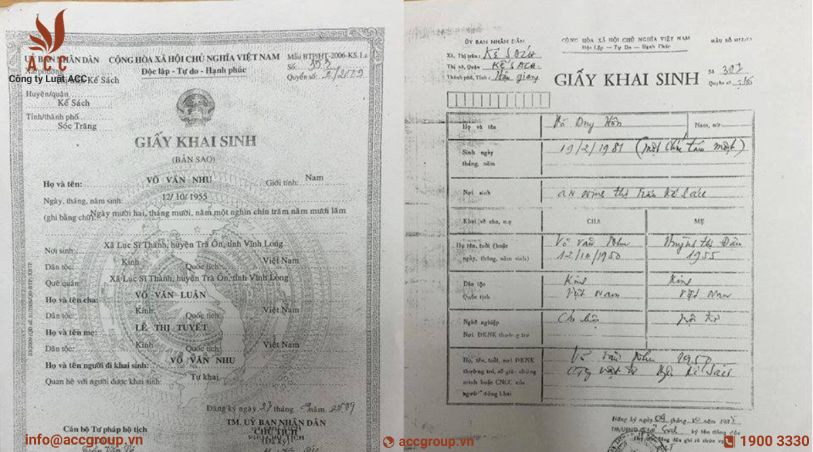 ACC
Công ty Luật ACC
ỦY BAN NHÂN DÂN
CỘNG HÒA XÃ HỘI CHỦ NGHĨA VIỆT NAM
Độc lập - Tự do - Hạnh phúc
Mẫu BTP/HT-2006-KS.1.a
Số: 353
Quyển số:
Kế Sách
Huyện/quận
Kế Sách
Tỉnh/thành phố
Sóc Trăng
GIẤY KHAI SINH
(BẢN SAO)
Họ và tên: VÕ VĂN NHU Giới tính: Nam
Ngày, tháng, năm sinh: 12/10/1955
(ghi bằng chữ): Ngày mười hai, tháng mười, năm một nghìn chín trăm năm mươi lăm
Nơi sinh: Xã Lục Sĩ Thành, huyện Trà Ôn, tỉnh Vĩnh Long
Dân tộc: Kinh Quốc tịch: Việt Nam
Quê quán: Xã Lục Sĩ Thành, huyện Trà Ôn, tỉnh Vĩnh Long
Họ và tên cha: VÕ VĂN LUẬN
Dân tộc: Kinh Quốc tịch: Việt Nam
Họ và tên mẹ: LÊ THỊ TUYẾT
Dân tộc: Kinh Quốc tịch: Việt Nam
Họ và tên người đi khai sinh: VÕ VĂN NHU
Quan hệ với người được khai sinh: Tự khai
Đăng ký ngày 23 tháng năm 2009
Cán bộ Tư pháp hộ tịch
TM. UỶ BAN NHÂN DÂN
CHỦ TỊCH
ỦY BAN NHÂN DÂN
Xã, Thị trấn: Kế Sách
Thị xã, Quận: Kế Sách
Thành phố, Tỉnh: Hậu giang
CỘNG HÒA XÃ HỘI CHỦ NGHĨA VIỆT NAM
Độc Lập - Tự Do - Hạnh Phúc
GIẤY KHAI SINH
Số 303
Quyển số
Họ và tên
Võ Duy
Nam, nữ
Sinh ngày
tháng, năm
19/2/1981 (một chín tám một)
Nơi sinh
thị trấn Kế Sách
Khai về cha, mẹ
CHA
MẸ
Họ, tên, tuổi (hoặc
ngày, tháng, năm sinh)
Võ văn Nhu
12/10/1950
Huỳnh thị
1955
Dân tộc
Kinh
Kinh
Quốc tịch
Việt Nam
Việt Nam
Nghề nghiệp
Nơi ĐKNK thường trú
Cán bộ
Nội trợ
Họ, tên, tuổi, nơi ĐKNK
thường trú, số giấy chứng
minh hoặc CNCC của
người đứng khai
Võ văn Nhu 1950
Kế Sách
Đăng ký ngày tháng năm
info@accgroup.vn
accgroup.vn
1900 3330